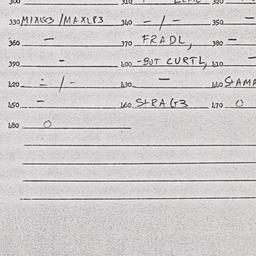 300 310 320
330 MIXLG3/MAXLP3 340 -/- 350 -
360 - 370 FRADL, 380 -
390 - 400 -BUT CURTL, 410 -
420 ÷/- 430 - 440 STAMA
450 - 460 STRAG3 470 0
480 0